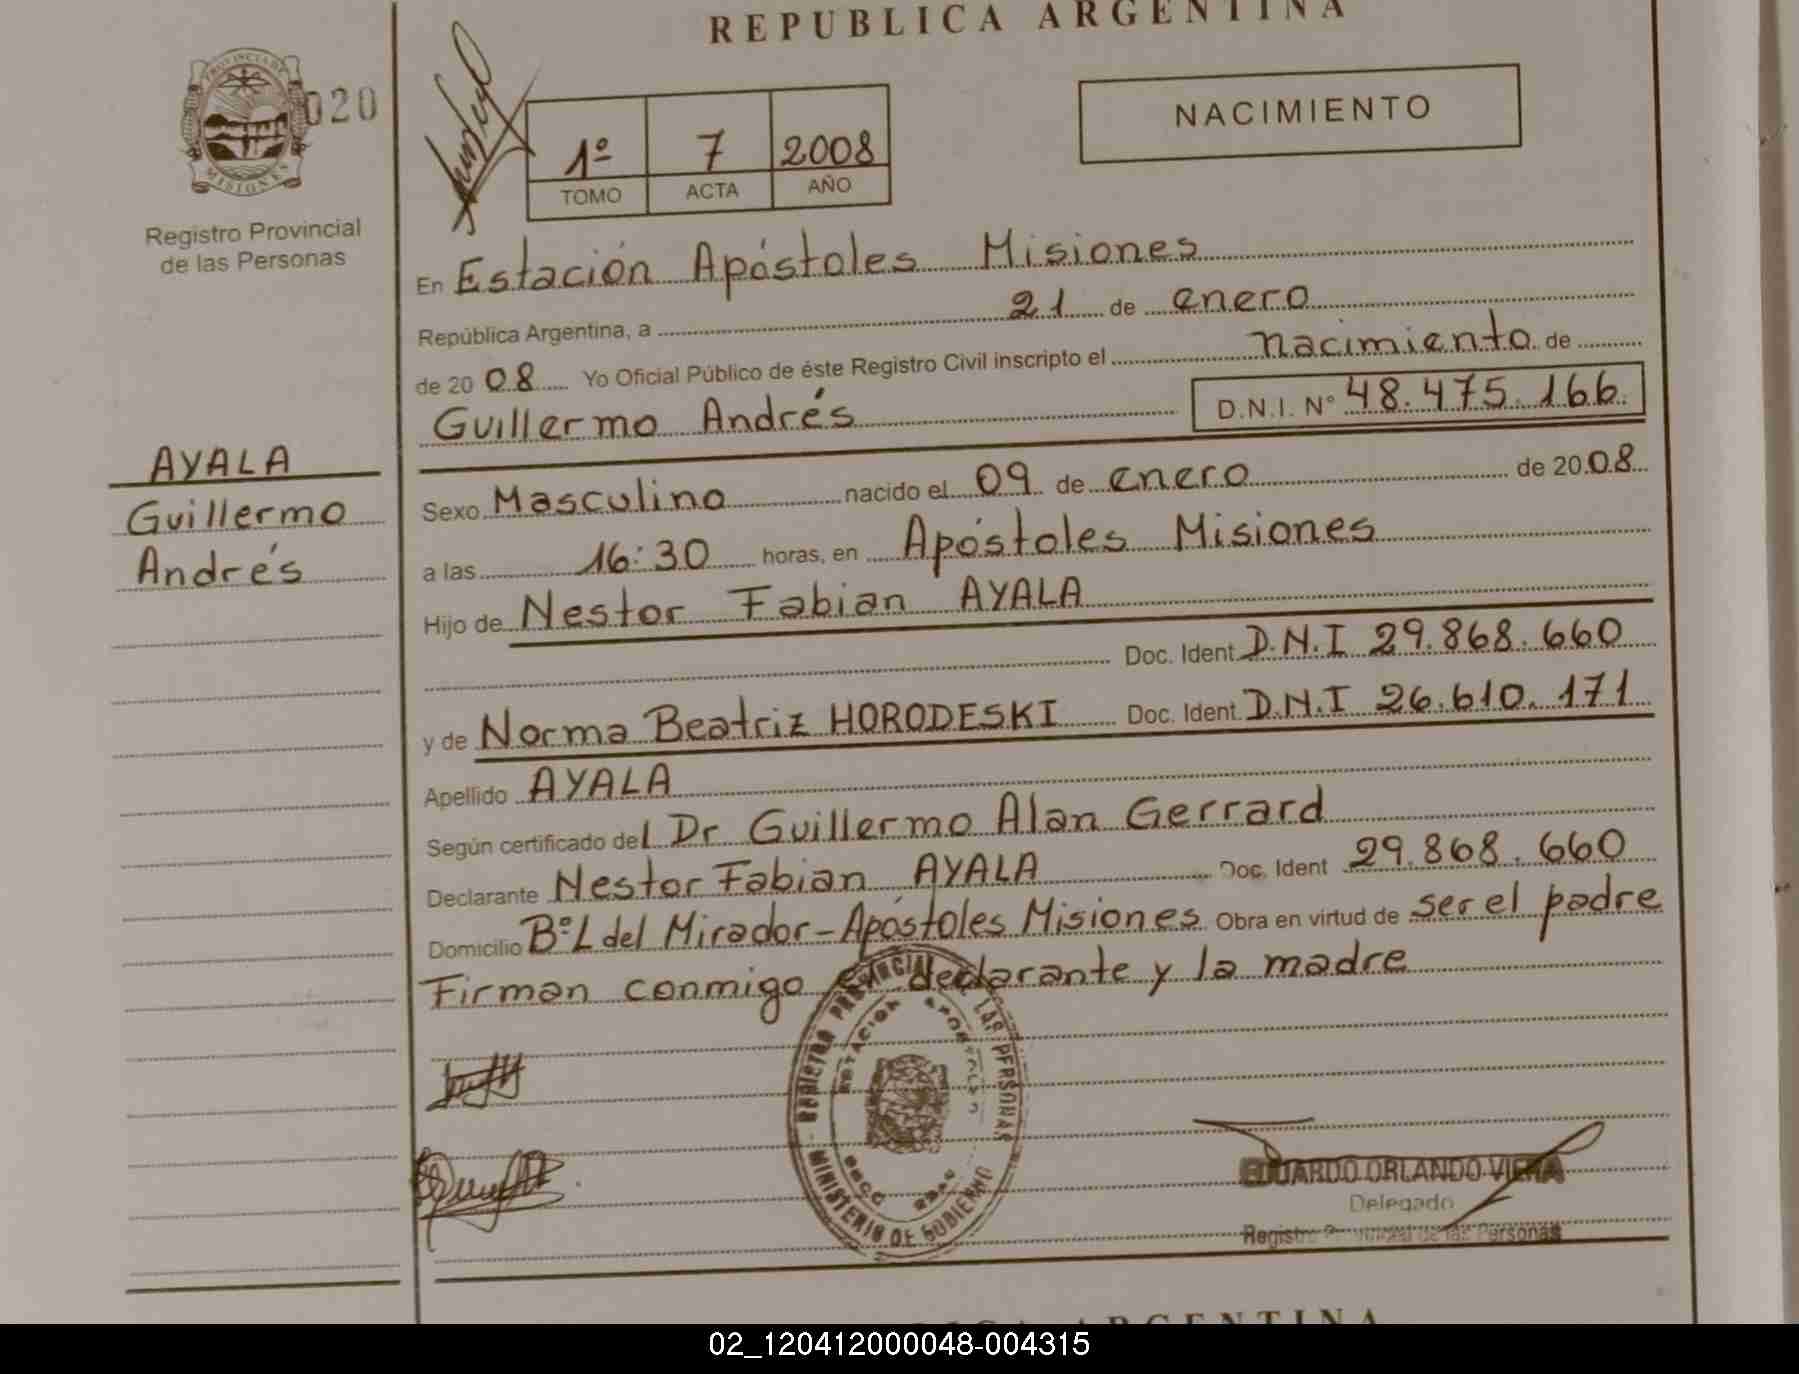 REPUBLICA ARGENTINA
PROVINCIA DE
MISIONES
020
Registro Provincial
de las Personas
1º 7 2008
TOMO ACTA AÑO
NACIMIENTO
En Estación Apóstoles Misiones
República Argentina, a 21 de enero
de 20 08 Yo Oficial Público de éste Registro Civil inscripto el nacimiento de
Guillermo Andrés D.N.I. Nº 48.475.166.
AYALA
Guillermo
Andrés
Sexo Masculino nacido el 09 de enero de 20 08
a las 16:30 horas, en Apóstoles Misiones
Hijo de Nestor Fabian AYALA
Doc. Ident. D.N.I 29.868.660
y de Norma Beatriz HORODESKI Doc. Ident. D.N.I 26.610.171
Apellido AYALA
Según certificado del Dr Guillermo Alan Gerrard
Declarante Nestor Fabian AYALA Doc. Ident 29.868.660
Domicilio Bº L del Mirador - Apóstoles Misiones Obra en virtud de ser el padre
Firman conmigo el declarante y la madre
REGISTRO PROVINCIAL LAS PERSONAS
ESTACION APOSTOLES
MINISTERIO DE GOBIERNO
EDUARDO ORLANDO VIERA
Delegado
Registro Provincial de las Personas
ARGENTINA
02_120412000048-004315